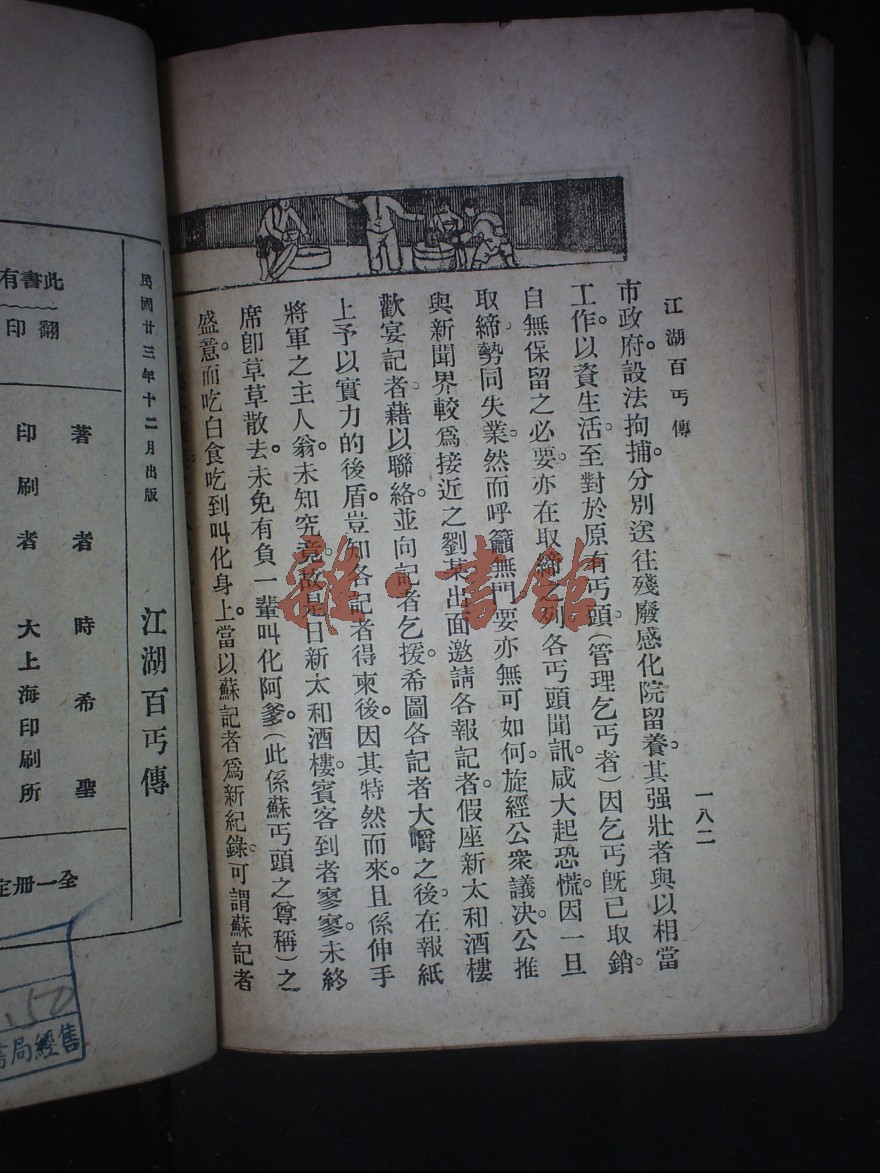 江湖百丐傳
一八二
市政府設法拘捕。分別送往殘廢感化院留養。其强壯者與以相當
工作以資生活。至對於原有丐頭。(管理乞丐者)因乞丐旣已取銷。
自無保留之必要。亦在取締之列。各丐頭聞訊。咸大起恐慌。因一旦
取締。勢同失業。然而呼籲無門。要亦無可如何。旋經公衆議决。公推
與新聞界較爲接近之劉某出面邀請各報記者。假座新太和酒樓
歡宴記者。藉以聯絡。並向記者乞援。希圖各記者大嚼之後。在報紙
上予以實力的後盾。豈知各記者得柬後。因其特然而來。且係伸手
將軍之主人翁。未知究竟。故是日新太和酒樓。賓客到者寥寥。未終
席卽草草散去。未免有負一輩叫化阿爹。(此係蘇丐頭之尊稱)之
盛意。而吃白食吃到叫化身上。當以蘇記者爲新紀錄。可謂蘇記者
雜·書館
民國廿三年十二月出版
江湖百丐傳
此書有
翻印
著者 時希聖
印刷者 大上海印刷所
全一册定
.50
書局經售